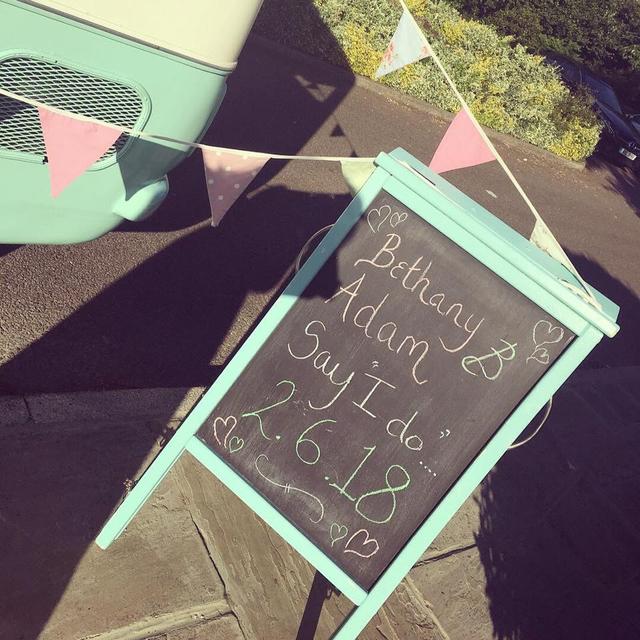 Bethany &
Adam
Say "I do..."
2.6.18